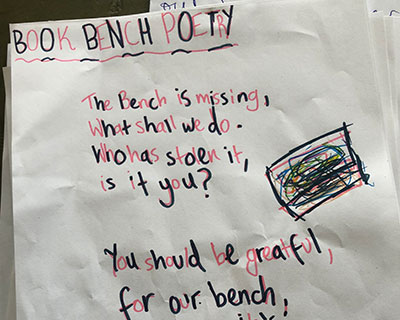 BOOK BENCH POETRY
The Bench is missing,
What shall we do.
Who has stolen it,
is it you?
You should be greatful,
for our bench,